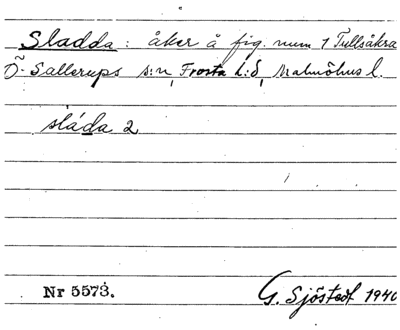 Sladda: åker å fig. num 1 Tullsåkra
Ö. Sallerups s:n, Frosta h:d, Malmöhus l.
sláda 2
Nr 5573.
G. Sjöstedt 1940